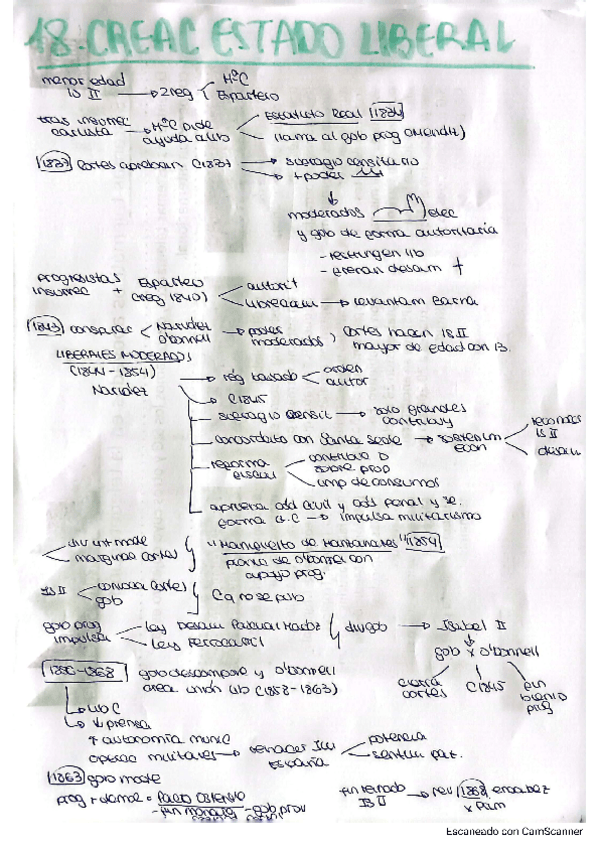 18. CREAC ESTADO LIBERAL
menor edad IS II → 2 reg
Mª C
Espartero
tras insurrec carlista → Mª C pide ayuda a lib
Estatuto Real (1834)
llama al gob prog (Mendiz)
1837 Cortes aprueban C1837
→ sufragio censitario
→ + poder
moderados elec
y gob de forma autoritaria
- restringen lib
- frenan desam
Progresistas + Espartero
insurrec (reg 1840)
autorit
librecam → levantam Barna
1843 conspirac
Narváez
O'Donell
→ poder moderados
Cortes hacen IS II
mayor de edad con 13.
LIBERALES MODERADOS
(1844 - 1854)
Narváez
→ rég basado
orden
autor
→ C1845
sufragio censit → solo grandes contribuy
concordato con Santa Sede → sostenim econ
reconoce IS II
desam
reforma fiscal
contribuc D sobre prop
imp de consumos
aprueba cód civil y cód penal y se
forma G.C → impulsa militarismo
div int mode
marginac cortes
"Manifiesto de Manzanares" 1854
O'Donell con
apoyo prog.
IS II
convoca Cortes
gob
C q no se pub
gob prog impulsa
Ley Desam Pascual Madoz
Ley Ferrocarril
div gob → Isabel II
gob x O'Donell
cierra cortes
C1845
fin bienio prog
1856-1868
gob descompone y O'Donell
crea Unión Lib (1858 - 1863)
→ Lib C
→ prensa
↑ autonomía munic
operac militares → renacer
España
potencia
sentim pat.
1863 gob mode
prog + demóc = Pacto Ostende
- fin monarq - gob prov
fin reinado IS II → rev 1868 encabez
x Prim
Escaneado con CamScanner